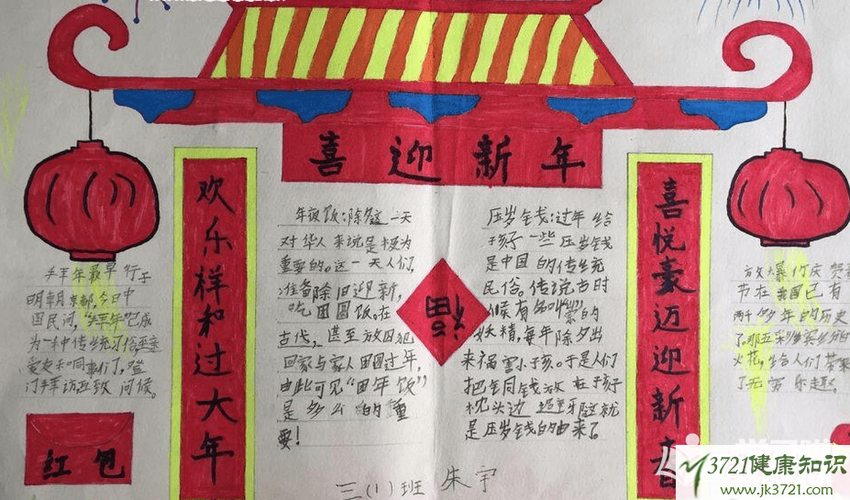 喜迎新年
欢乐样和过大年
年夜饭:除夕这一天
对华人来说是极为
重要的。这一天人们
准备除旧迎新,
吃团圆饭。在
古代,甚至放囚犯
回家与家人团圆过年,
由此可见“团年饭”
是多么的重
要!
福
压岁钱:过年给
孩子一些压岁钱
是中国的传统
民俗。传说古时
候有名叫“祟”的
妖精,每年除夕出
来祸害小孩。于是人们
把铜钱放在孩子
枕头边
这就
是压岁钱的由来了。
喜悦豪迈迎新春
拜年最早行于
明朝京都,今日中
国民间,“拜年”已成
为一种传统习俗,
爱友和同事们,登
门拜访互致问候。
红包
放爆竹庆贺
节在我国已有
两千多年的历史
了。那五彩缤纷的
火花,给人们带来
了无穷乐趣。
三(1)班 朱宇
3721健康知识
www.jk3721.com